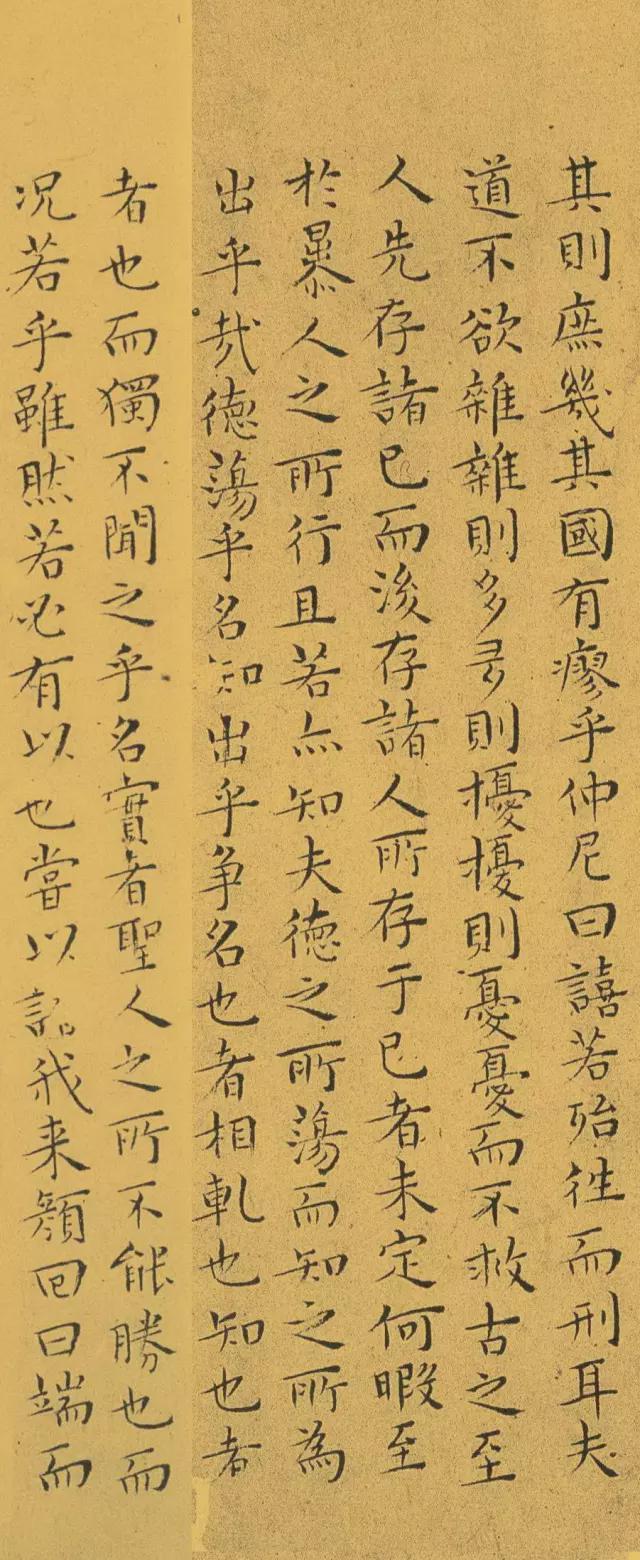 其則庶幾其國有瘳乎仲尼曰譆若殆往而刑耳夫
道不欲雜雜則多多則擾擾則憂憂而不救古之至
人先存諸己而後存諸人所存于己者未定何暇至
於暴人之所行且若亦知夫德之所蕩而知之所為
出乎哉德蕩乎名知出乎争名也者相軋也知也者
者也而獨不聞之乎名實者聖人之所不能勝也而
况若乎雖然若必有以也嘗以語我来顏回曰端而